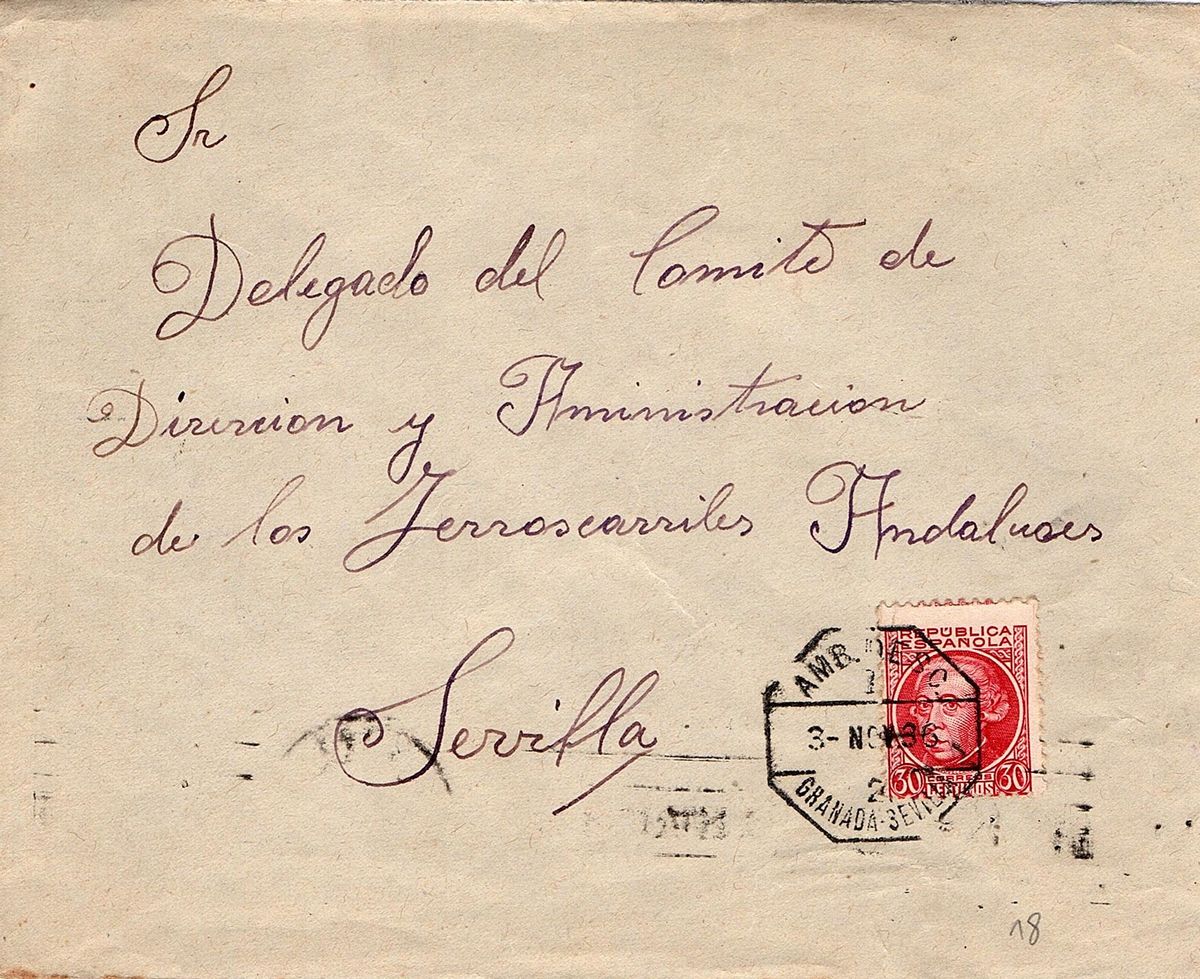 Sr
Delegado del Comité de
Dirercion y Aministracion
de los Ferroscarriles Andaluces
Sevilla
REPÚBLICA
ESPAÑOLA
30 CORREOS 30
CENTIMOS
AMB.
3- NOV 36
GRANADA-SEVILLA
18